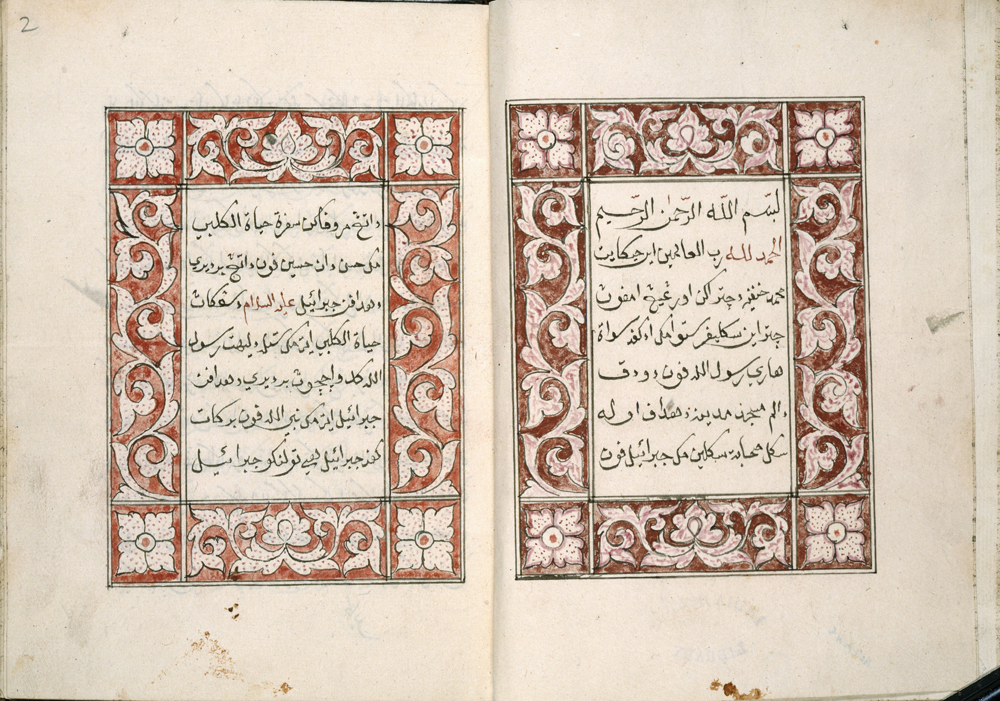 2
بسم الله الرحمن الرحيم
الحمد لله رب العالمين اين حكايت
محمد حنفيه دچتراكن اورڠ يڠ امفون
چترا اين سكالي فرستوا مك اد كفد سوات
هاري رسول الله فون دودق
دالم مسجد مدينه دهدافن اوله
سكل صحابة سكلين مك جبرائيل فون
داتڠ مروفاكن سفرة حياة الكلبي
مك حسن دان حسين فون داتڠ برديري
دهدافن جبرائيل عليه السلام دسڠكاڽ
حياة الكلبي ايت مك دليهت رسول
الله كدوا چوچون برديري دهدافن
جبرائيل ايت مك نبي الله فون بركات
كفد جبرائيل هي تولنكو جبرائيل